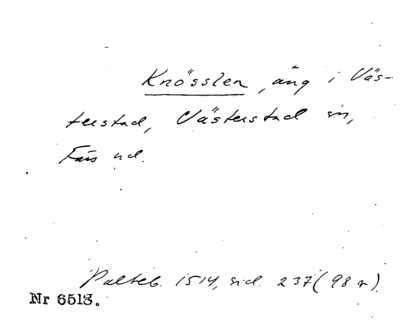 Knösslen, äng i Väs-
terstad, Västerstad sn,
Färs hd.
Palteb. 1514, sid. 237 (98 r).
Nr 6513.